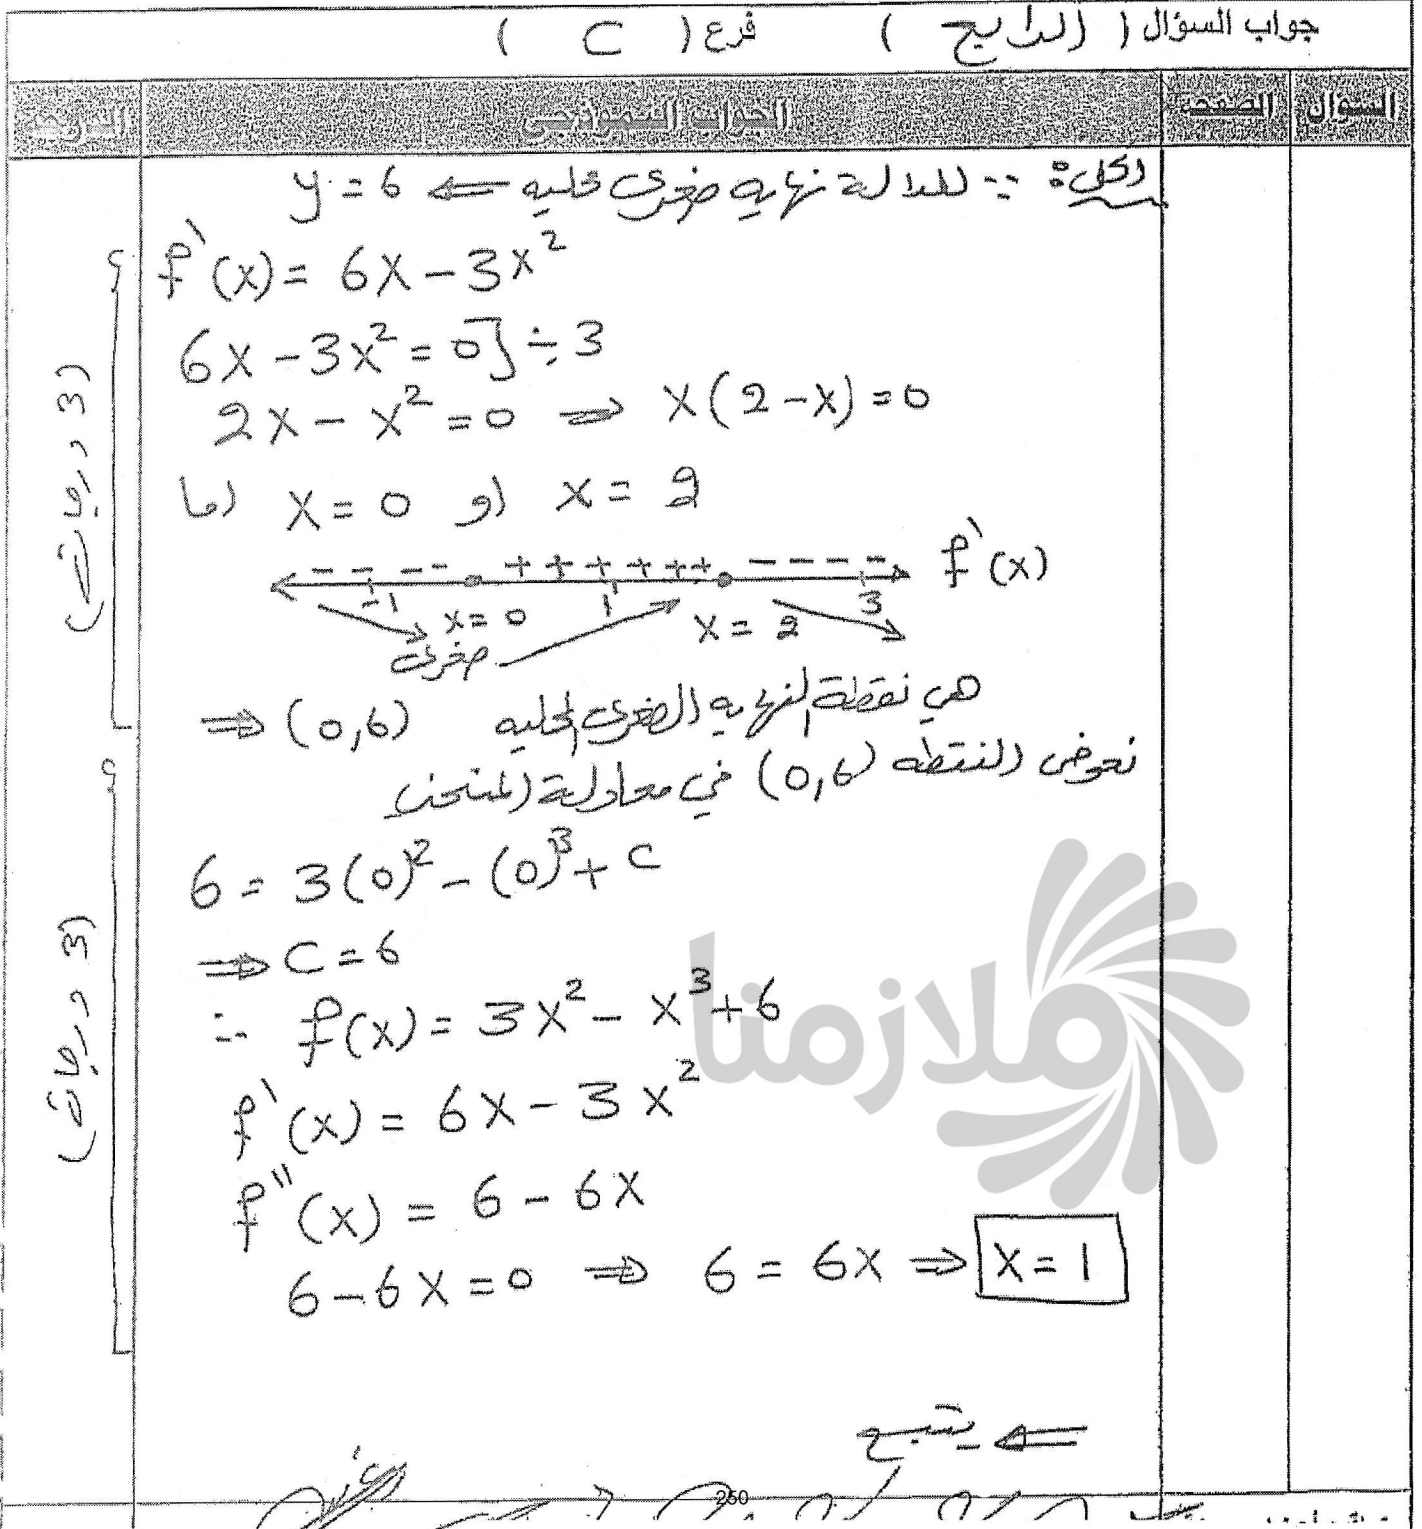 جواب السؤال ( الرابع ) فرع ( C )
السؤال الصفحة الجواب النموذجي الدرجة
الحل: ∵ للدالة نهاية صغرى محلية ⇐ y = 6
f'(x) = 6x - 3x²
6x - 3x² = 0] ÷ 3
2x - x² = 0 ⇒ x(2-x) = 0
اما x = 0 او x = 2
- - - - - + + + + + + - - - - f'(x)
-1 x = 0 1 x = 2 3
صغرى
⇒ (0,6) هي نقطة النهاية الصغرى المحلية
نعوض النقطه (0,6) في معادلة المنحني
6 = 3(0)² - (0)³ + C
⇒ C = 6
∴ f(x) = 3x² - x³ + 6
f'(x) = 6x - 3x²
f''(x) = 6 - 6x
6 - 6x = 0 ⇒ 6 = 6x ⇒ x = 1
⇐ يتبع
(3 درجات)
(3 درجات)
ملازمنا
250